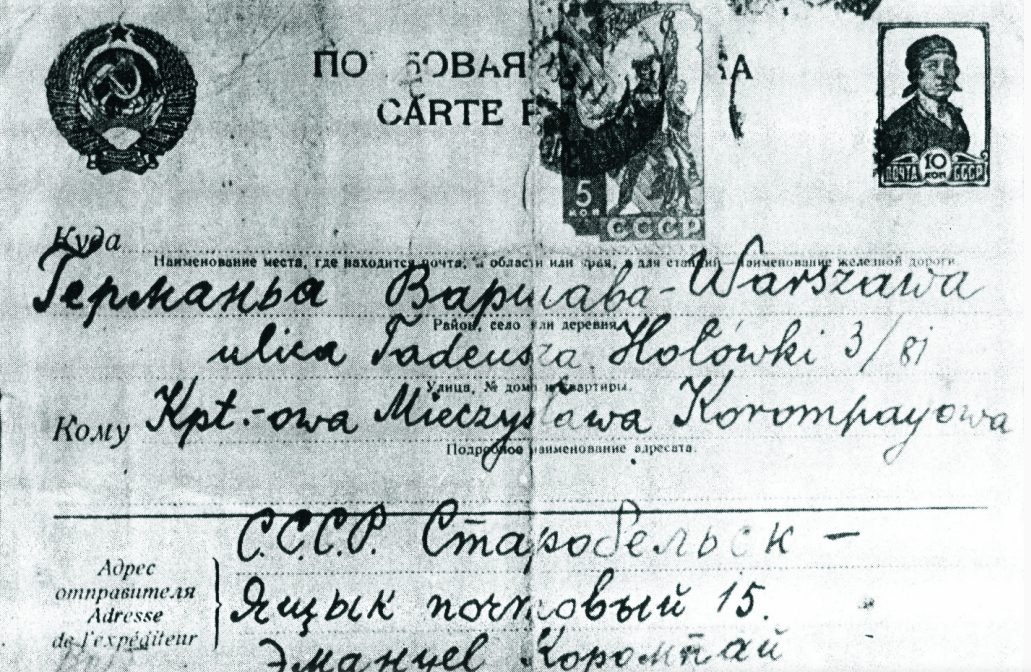 ПО ТОВАЯ КА
CARTE P
5
КОП.
СССР
10
КОП
ПОЧТА СССР
Куда
Наименование места, где находится почта, и области или края, а для станций – наименование железной дороги.
Германья Варшава - Warszawa
Район, село или деревня.
ulica Tadeusza Hołówki 3/81
Улица, № дома и квартиры.
Кому Kpt.-owa Mieczysława Korompayowa
Подробное наименование адресата.
С.С.С.Р. Старобельск –
Адрес
отправителя
Adresse
de l'expéditeur
Ящык почтовый 15.
Эмануел Коромпай